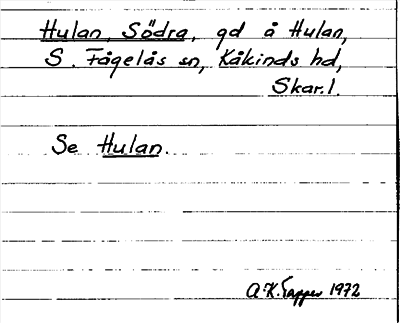 Hulan, Södra, gd å Hulan,
S. Fågelås sn, Kåkinds hd,
Skar.l.
Se Hulan.
A.K. 1972